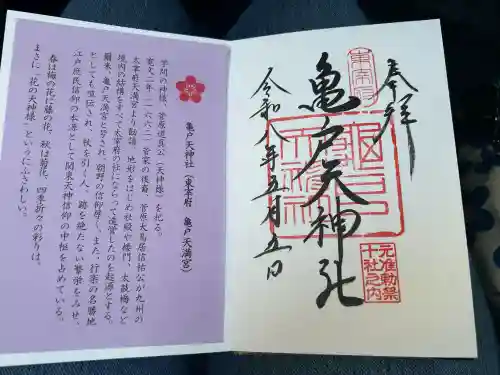 奉拝
東宰府
亀戸天神社
令和八年五月五日
元准勅祭
十社之内
亀戸天神社(東宰府 亀戸天満宮)
学問の神様、菅原道真公(天神様)を祀る。
寛文二年(一六六二)菅家の後裔、菅原大鳥居信祐公が九州の
太宰府天満宮より勧請、地形をはじめ社殿や楼門、太鼓橋など
境内の結構をすべて太宰府の社にならって造営したのを起源とする。
爾来、亀戸天満宮と呼され、朝野の信仰厚く、また、行楽の名勝地
としても喧伝され、秋を月く人、跡を絶たない繁栄をみせ、
江戸庶民信仰の本源として関東天神信仰の中枢を占めている。
春は梅の花に藤の花、秋は菊花、四季折々の彩りは、
まさに「花の天神様」というにふさわしい。